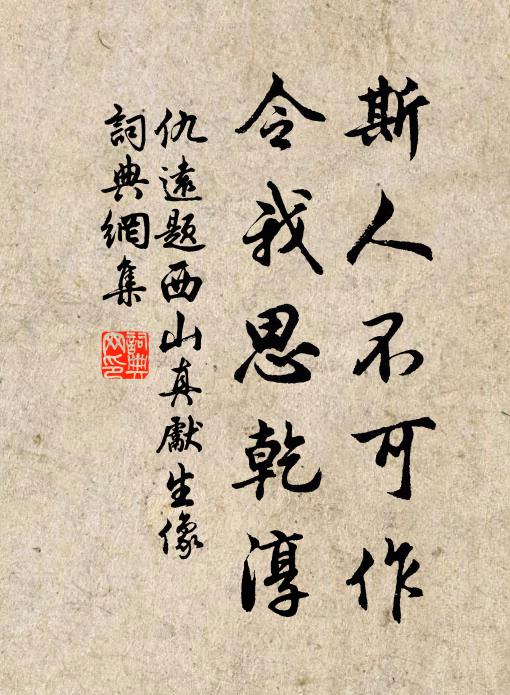 斯人不可作
令我思乾淳
仇遠題西山真獻生像
詞典網集
詞典网印